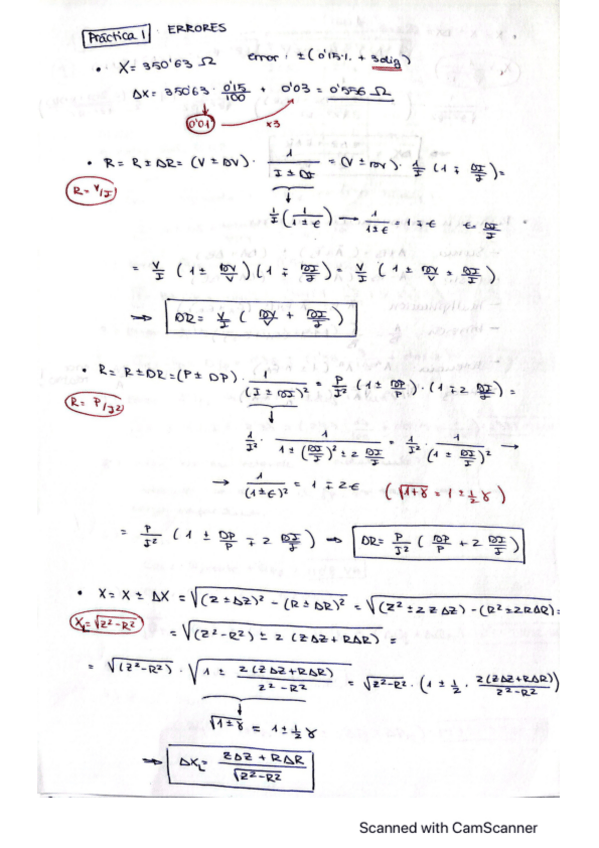 Práctica 1 ERRORES
• X = 350'63 Ω error: ±(0'15% + 3dig)
ΔX = 350'63 · 0'15/100 + 0'03 = 0'556 Ω
0'01 x3
• R = R ± ΔR = (V ± ΔV) · 1/(I ± ΔI) = (V ± ΔV) · 1/I (1 ∓ ΔI/I) =
R = V/I
1/I (1/(1±ε)) → 1/(1±ε) = 1 ∓ ε ε = ΔI/I
= V/I (1 ± ΔV/V)(1 ∓ ΔI/I) = V/I (1 ± ΔV/V ± ΔI/I)
→ ΔR = V/I (ΔV/V + ΔI/I)
• R = R ± ΔR = (P ± ΔP) · 1/(I ± ΔI)² = P/I² (1 ± ΔP/P) · (1 ∓ 2 ΔI/I) =
R = P/I²
1/I² · 1/(1 ± (ΔI/I)² ± 2 ΔI/I) = 1/I² · 1/(1 ± ΔI/I)² →
→ 1/(1±ε)² = 1 ∓ 2ε (√(1+γ) = 1 ± ½ γ)
= P/I² (1 ± ΔP/P ∓ 2 ΔI/I) → ΔR = P/I² (ΔP/P + 2 ΔI/I)
• X = X ± ΔX = √((Z±ΔZ)² − (R±ΔR)²) = √((Z² ± 2ZΔZ) − (R² ± 2RΔR)) =
X_L = √(Z²−R²)
= √((Z²−R²) ± 2 (ZΔZ + RΔR)) =
= √(Z²−R²) · √(1 ± 2(ZΔZ+RΔR)/(Z²−R²)) = √(Z²−R²) · (1 ± ½ · 2(ZΔZ+RΔR)/(Z²−R²))
√(1±γ) = 1 ± ½ γ
→ ΔX_L = (ZΔZ + RΔR)/√(Z²−R²)
Scanned with CamScanner